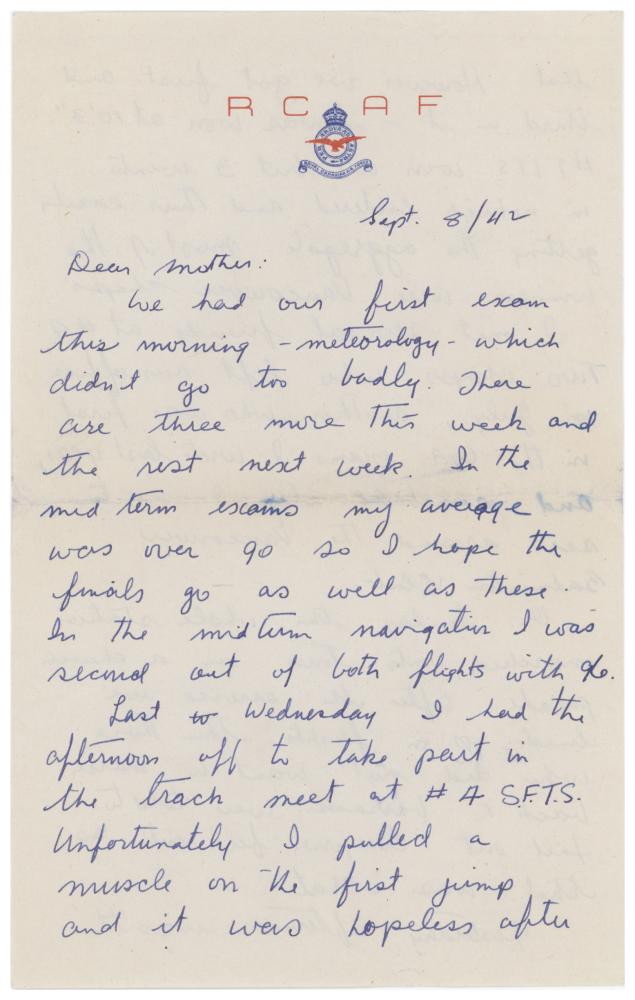 R C A F
PER ARDUA AD ASTRA
ROYAL CANADIAN AIR FORCE
Sept. 8/42
Dear Mother:
We had our first exam
this morning - meteorology - which
didn't go too badly. There
are three more this week and
the rest next week. In the
mid term exams my average
was over 90 so I hope the
finals go as well as these.
In the midterm navigation I was
second out of both flights with 96.
Last Wednesday I had the
afternoon off to take part in
the track meet at # 4 S.F.T.S.
Unfortunately I pulled a
muscle on the first jump
and it was hopeless after